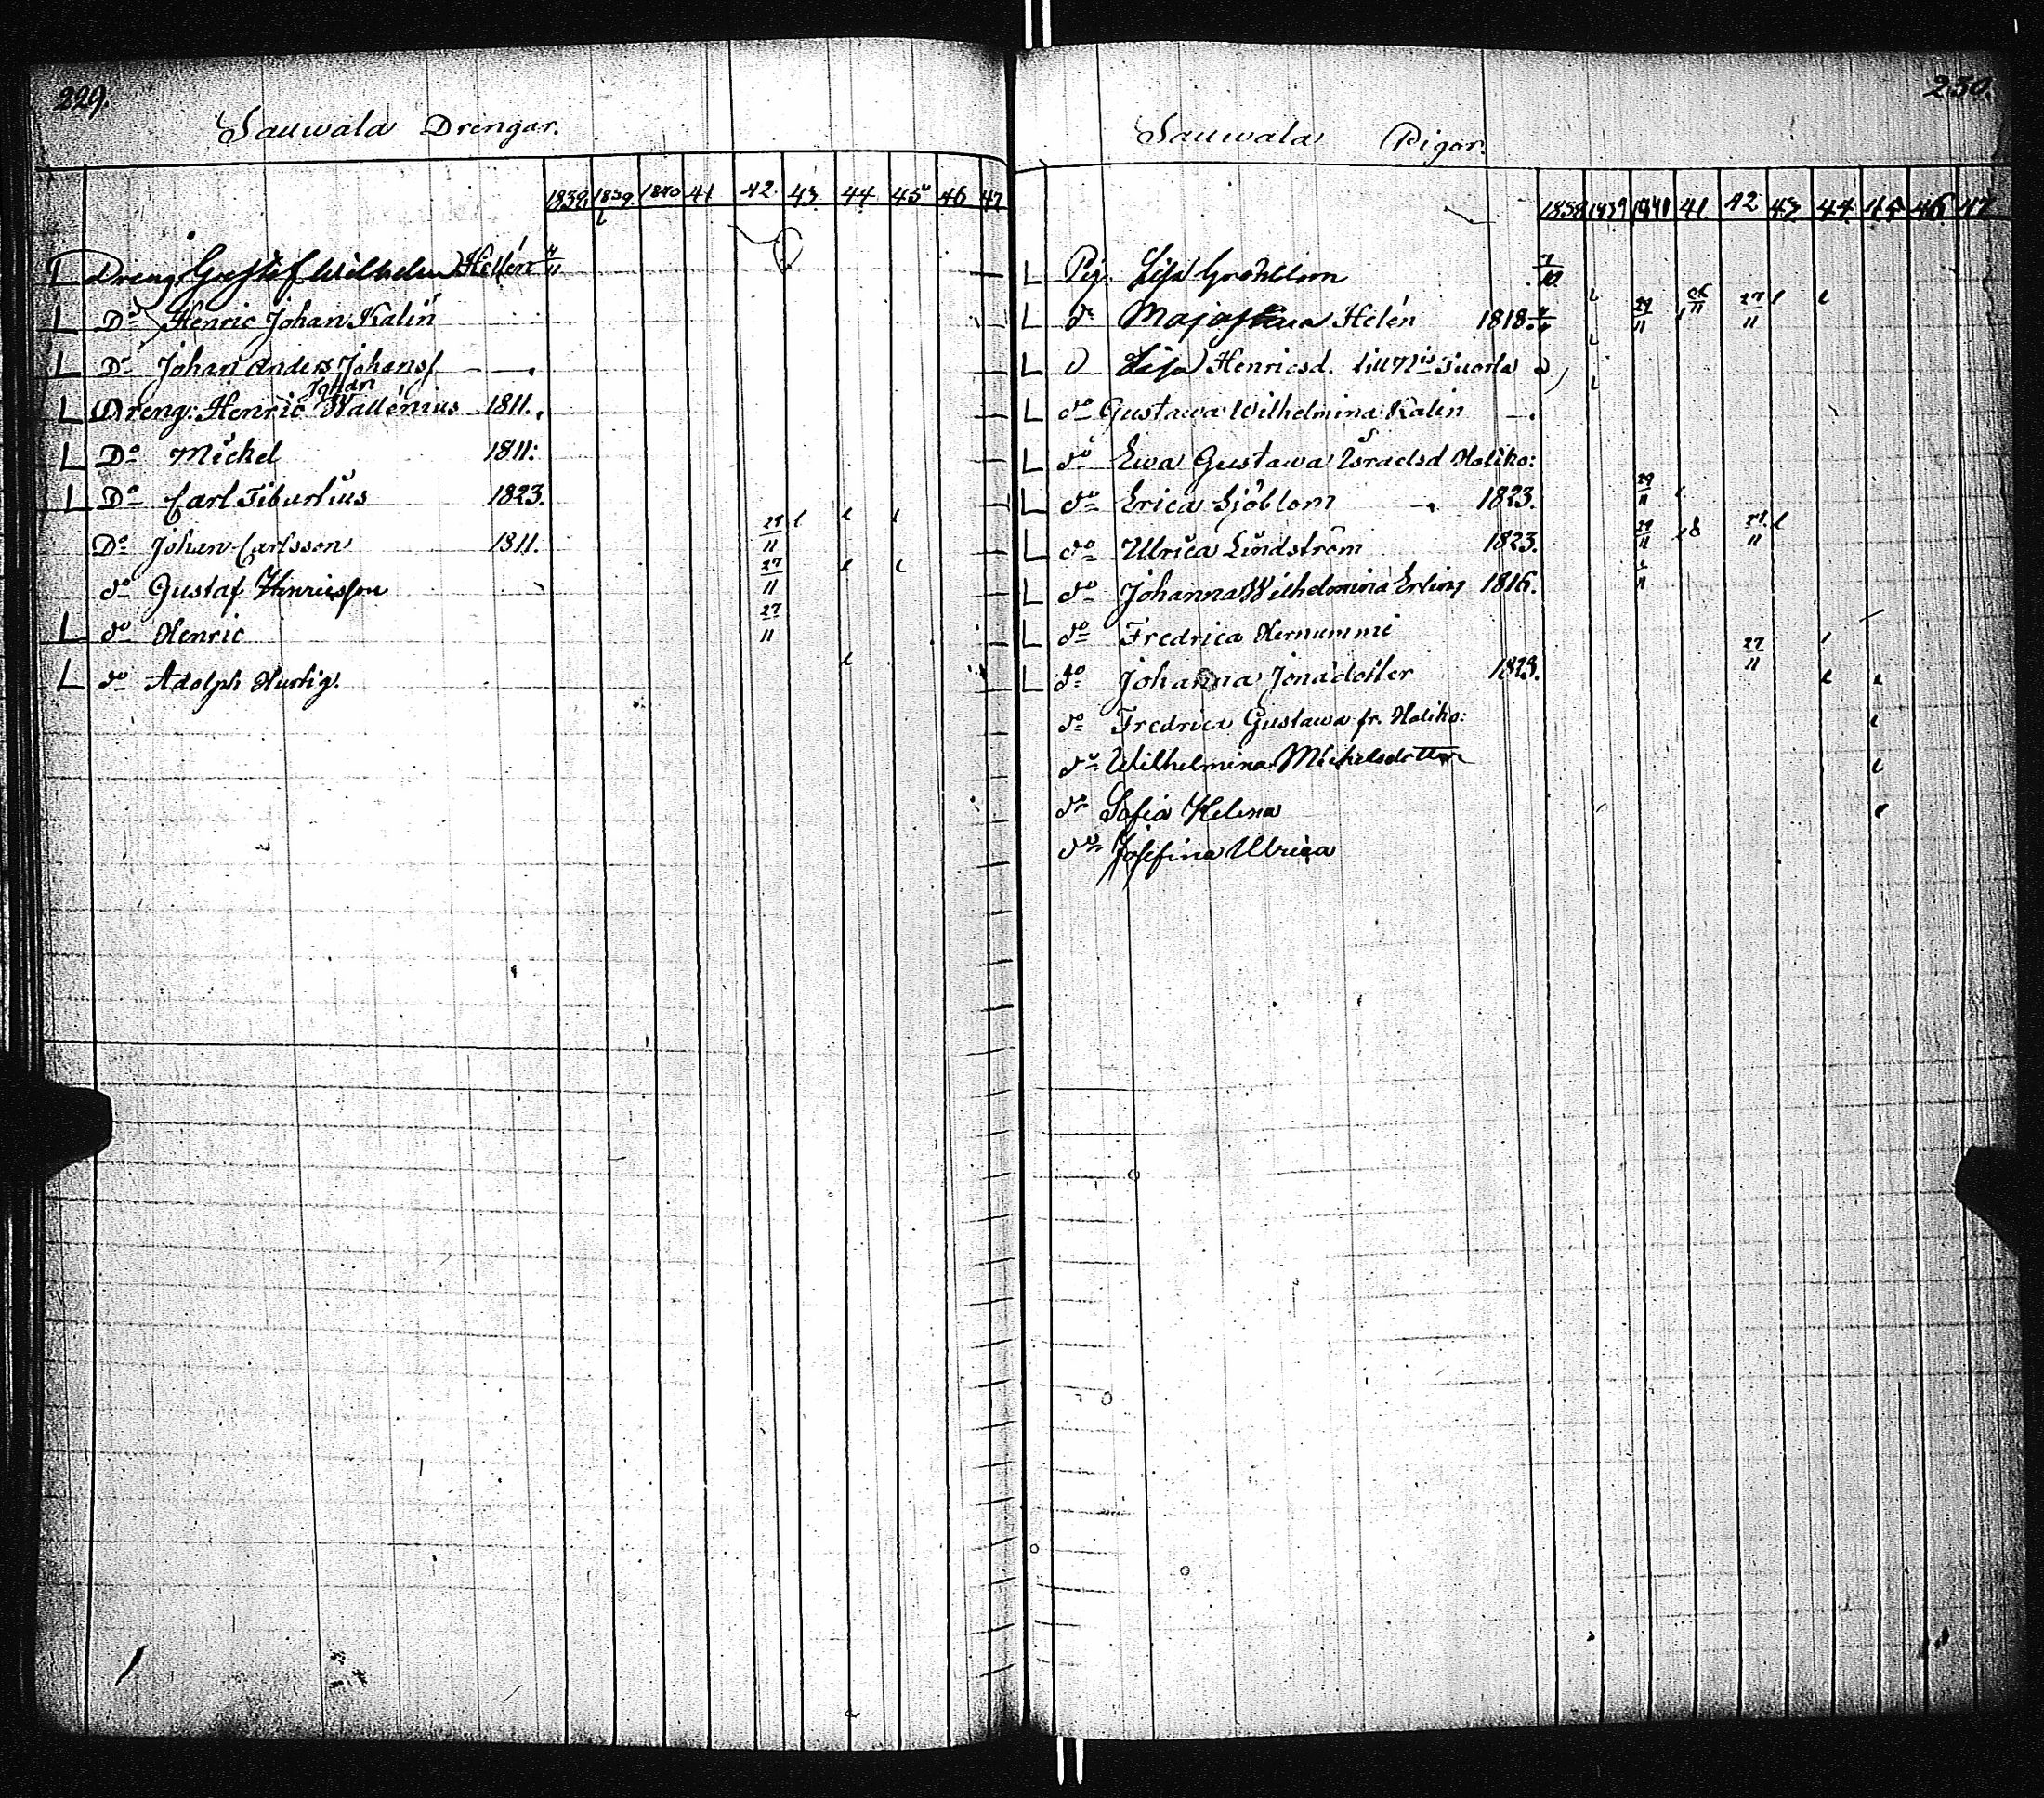 229.
Sauwala Drengar.
1838. 1839. 1840 41 42. 43. 44. 45 46 47
L Dreng. Gustaf Wilhelm Hellén 4/11
L Do Henric Johan Kalin
L Do Johan Anders Johanss
Johan
L Dreng: Henric Wallenius 1811.
L Do Michel 1811:
L Do Carl Tiburtius 1823.
Do Johan Carlsson 1811. 27/11
do Gustaf Henricsson 27/11
L do Henric 27/11
L do Adolph Hurtig.
230.
Sauwala Pigor.
1838 1839 41 42 43 44 45 46 47
L Pig. Lisa Gröhblom 7/10
L do Maja Helén 1818. 29/11 27/11
L d Lisa Henricsd. till Suorla
L do Gustawa Wilhelmina Kalin
L do Ewa Gustawa Israelsd Haliko:
L do Erica Sjöblom 1823. 29/11
L do Ulrica Lindström 1823. 29/11 27/11
L do Johanna Wilhelmina Erling 1816.
L do Fredrica Hernummi
L do Johanna Jonadotter 1823. 27/11
do Fredrica Gustawa fr. Haliko:
do Wilhelmina Michelsdotter
do Sofia Helena
do Josefina Ulrica